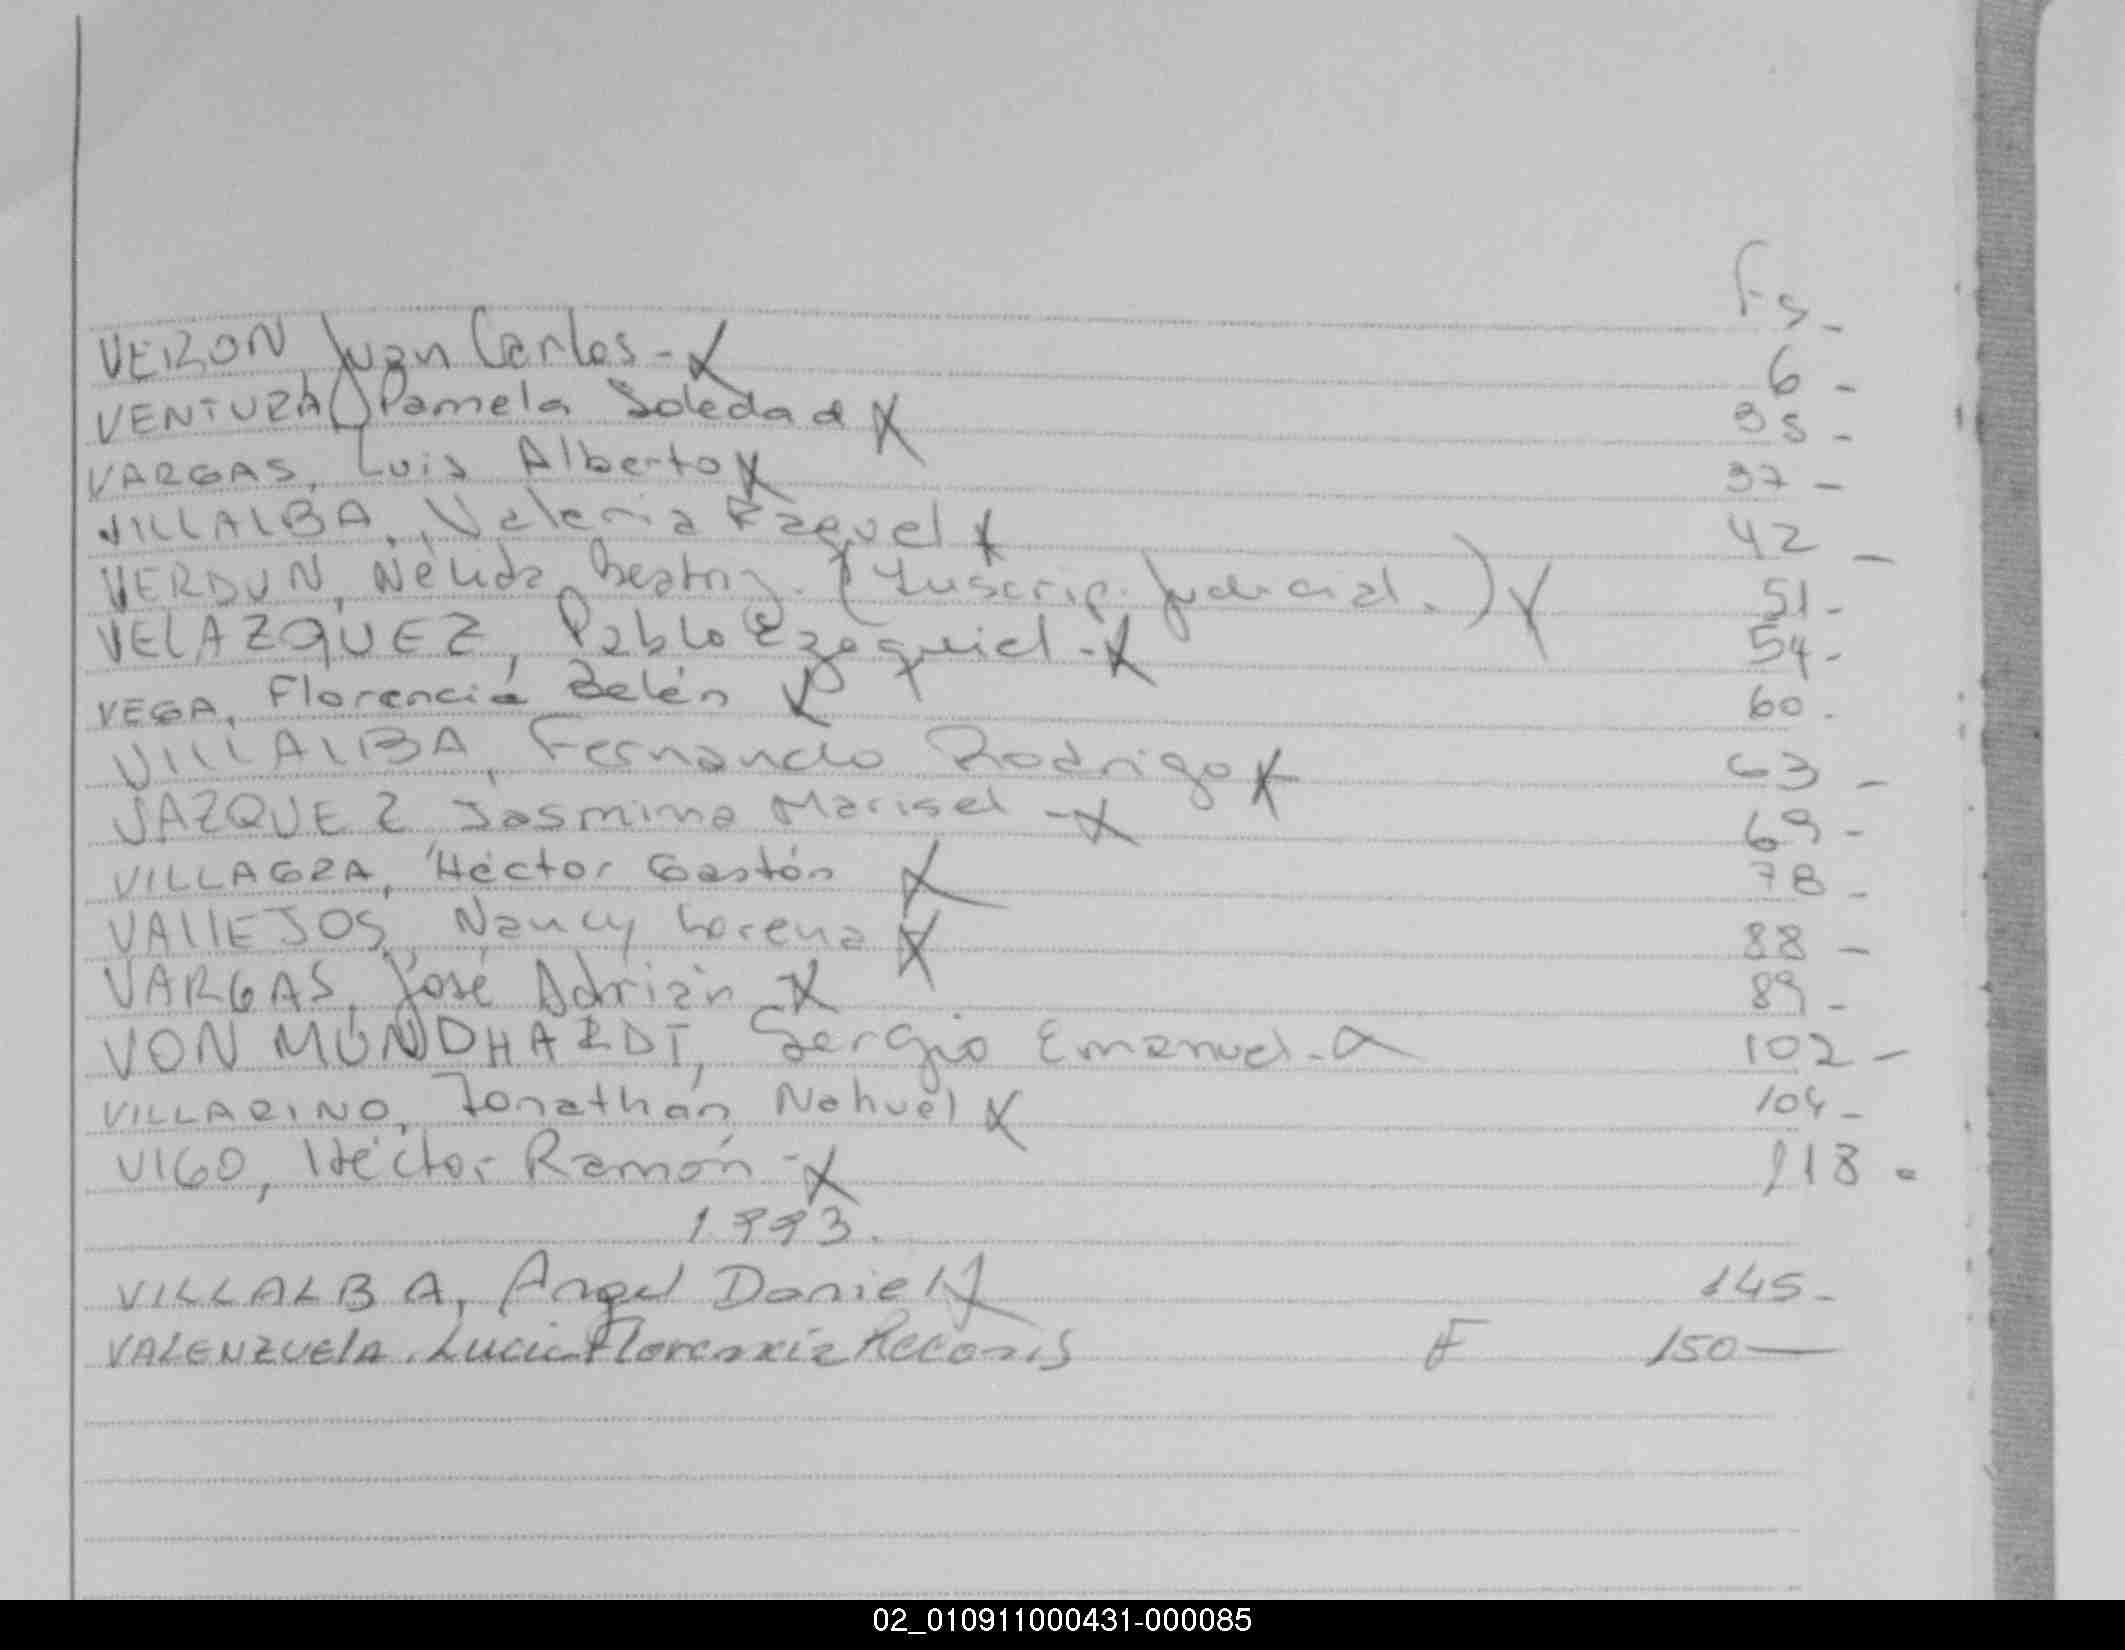 Fs_
VERON Juan Carlos - X 6 -
VENTURA, Pamela Soledad X 35 -
VARGAS, Luis Alberto X 37 -
VILLALBA, Valeria Raquel X 42 -
VERDUN, Nélida Beatriz. (Inscrip. Judicial.) X 51 -
VELAZQUEZ, Pablo Ezequiel - X 54 -
VEGA, Florencia Belén X 60 -
VILLALBA, Fernando Rodrigo X 63 -
VAZQUEZ Jasmina Marisel - X 69 -
VILLAGRA, Héctor Gastón X 78 -
VALLEJOS, Nancy Lorena X 88 -
VARGAS, José Adrián - X 89 -
VON MUNDHARDT, Sergio Emanuel - X 102 -
VILLARINO, Jonathan Nahuel X 104 -
VIGO, Héctor Ramón - X 118 -
1993.
VILLALBA, Angel Daniel X 145 -
VALENZUELA. Lucia Florencia F 150 —
02_010911000431-000085